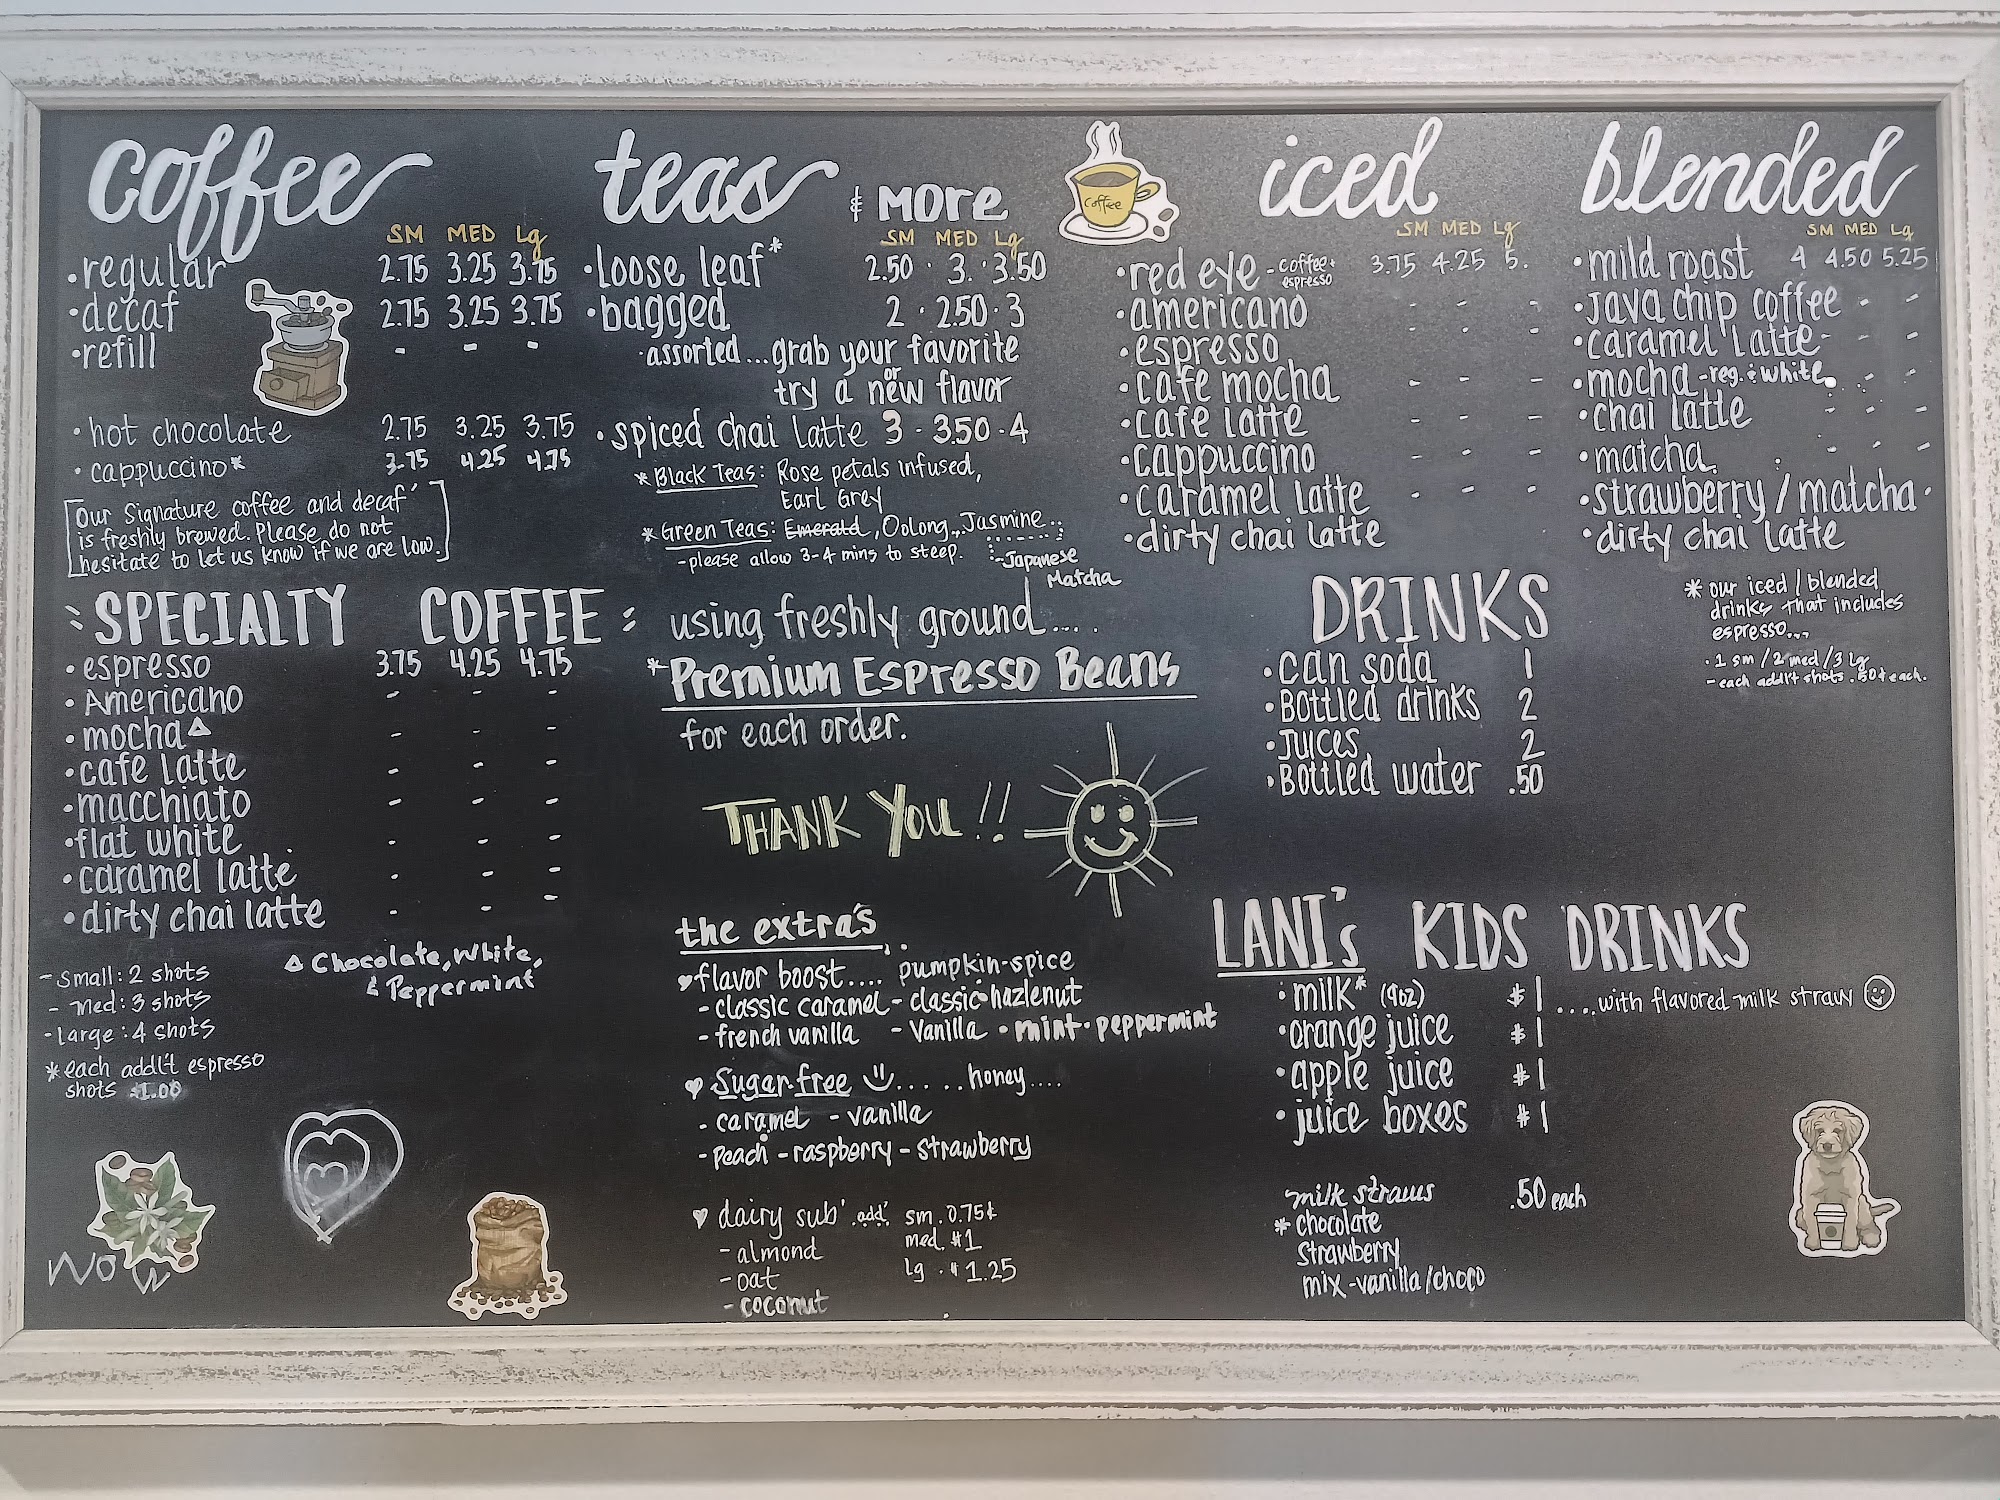 coffee
SM MED Lg
• regular 2.75 3.25 3.75
• decaf 2.75 3.25 3.75
• refill - - -
• hot chocolate 2.75 3.25 3.75
• cappuccino* 3.75 4.25 4.75
[our Signature coffee and decaf
is freshly brewed. Please do not
hesitate to let us know if we are low.]
SPECIALTY COFFEE
• espresso 3.75 4.25 4.75
• Americano - - -
• mocha △ - - -
• cafe latte - - -
• macchiato - - -
• flat white - - -
• caramel latte - - -
• dirty chai latte - - -
- Small: 2 shots
- Med: 3 shots
- large: 4 shots
* each addl't espresso
shots $1.00
△ Chocolate, White,
& Peppermint
WOW
teas & MORE
SM MED Lg
• loose leaf* 2.50 • 3. • 3.50
• bagged 2 • 2.50 • 3
• assorted... grab your favorite
or
try a new flavor
• spiced chai latte 3 - 3.50 - 4
* Black Teas: Rose petals infused,
Earl Grey
* Green Teas: Emerald, Oolong, Jasmine...
- please allow 3-4 mins to steep.
- Japanese
Matcha
using freshly ground....
*Premium Espresso Beans
for each order.
THANK YOU!!
the extra's
♥ flavor boost.... pumpkin-spice
- classic caramel - classic hazlenut
- french vanilla - Vanilla • mint • peppermint
♥ Sugar free ..... honey....
- caramel - vanilla
- Peach - raspberry - strawberry
♥ dairy sub' .add'. sm. 0.75¢
- almond med. $1
- oat lg. $1.25
- coconut
Coffee
iced
SM MED Lg
• red eye - coffee + espresso 3.75 4.25 5.
• americano - - -
• espresso - - -
• cafe mocha - - -
• cafe latte - - -
• cappuccino - - -
• caramel latte - - -
• dirty chai latte
DRINKS
• can soda 1
• Bottled drinks 2
• Juices 2
• Bottled water .50
blended
SM MED Lg
• mild roast 4 4.50 5.25
• Java chip coffee - - -
• caramel latte - - -
• mocha - reg. & white. - - -
• chai latte - - -
• matcha. - - -
• strawberry / matcha •
• dirty chai latte
* our iced / blended
drinks that includes
espresso...
• 1 sm / 2 med / 3 lg
- each addl't shots .50¢ each.
LANI's KIDS DRINKS
• milk* (9oz) $1 ....with flavored milk straw
• orange juice $1
• apple juice $1
• juice boxes $1
milk straws .50 each
* chocolate
strawberry
mix - vanilla/choco